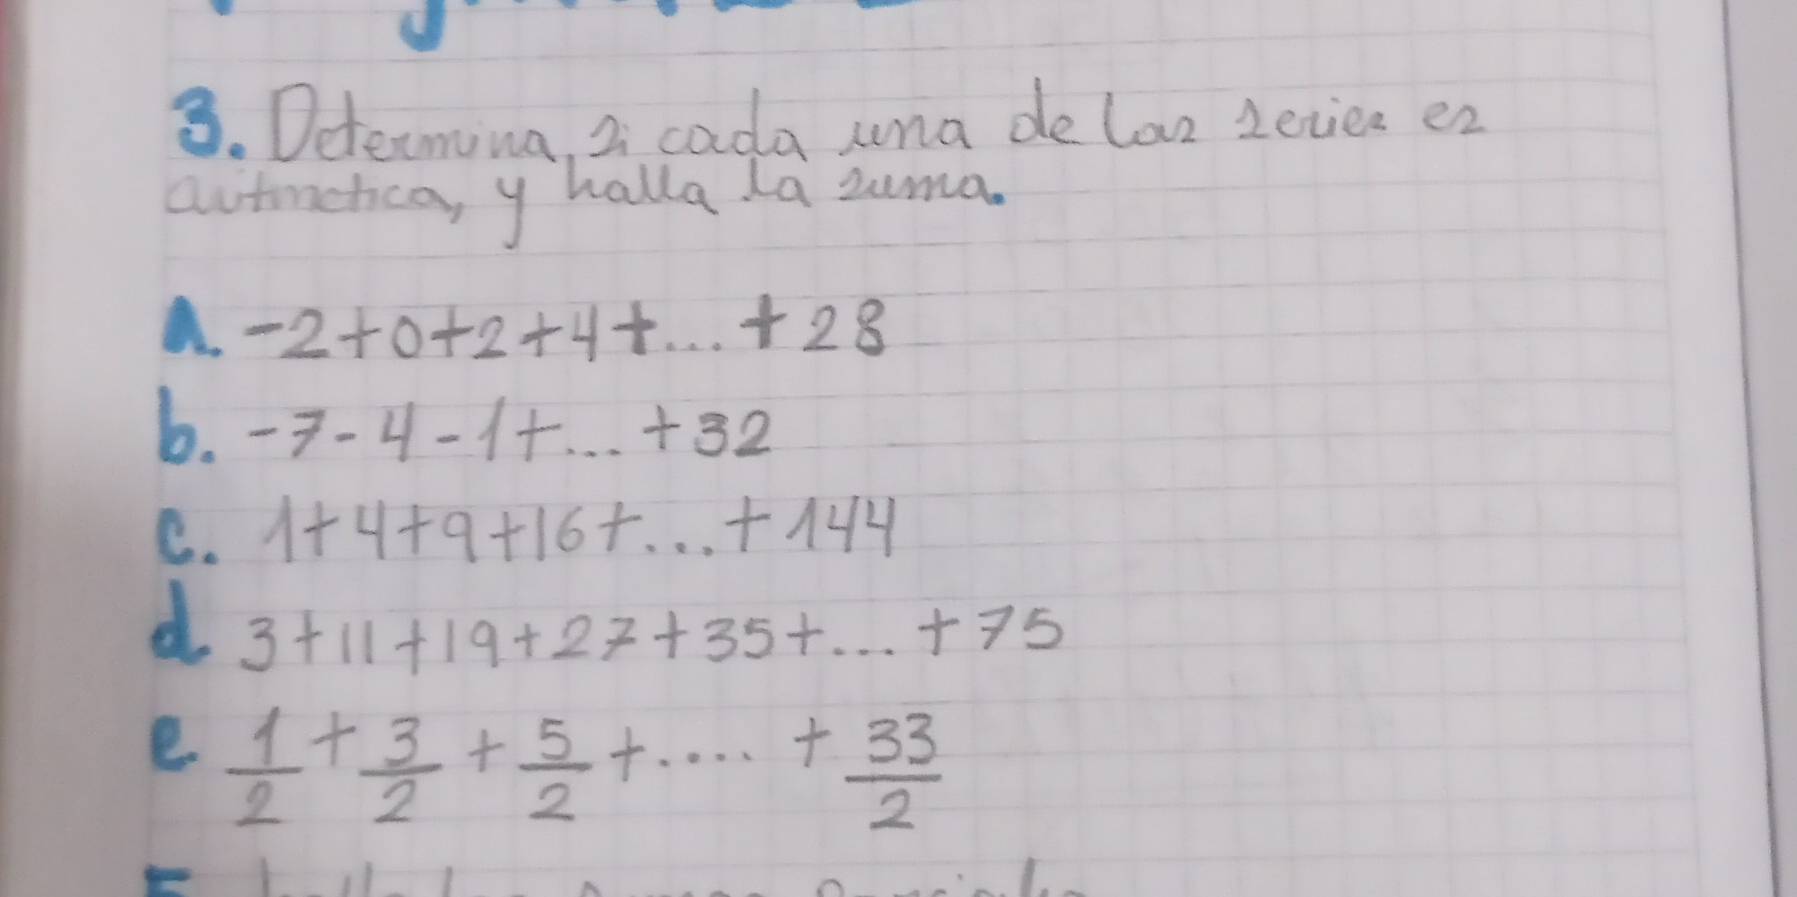 3. Determina, si cada una de las series es
aritmetica, y halla la suma.
A. -2+0+2+4+...+28
b. -7-4-1+...+32
c. 1+4+9+16+...+144
d. 3+11+19+27+35+...+75
e. 1/2 + 3/2 + 5/2 + .... + 33/2